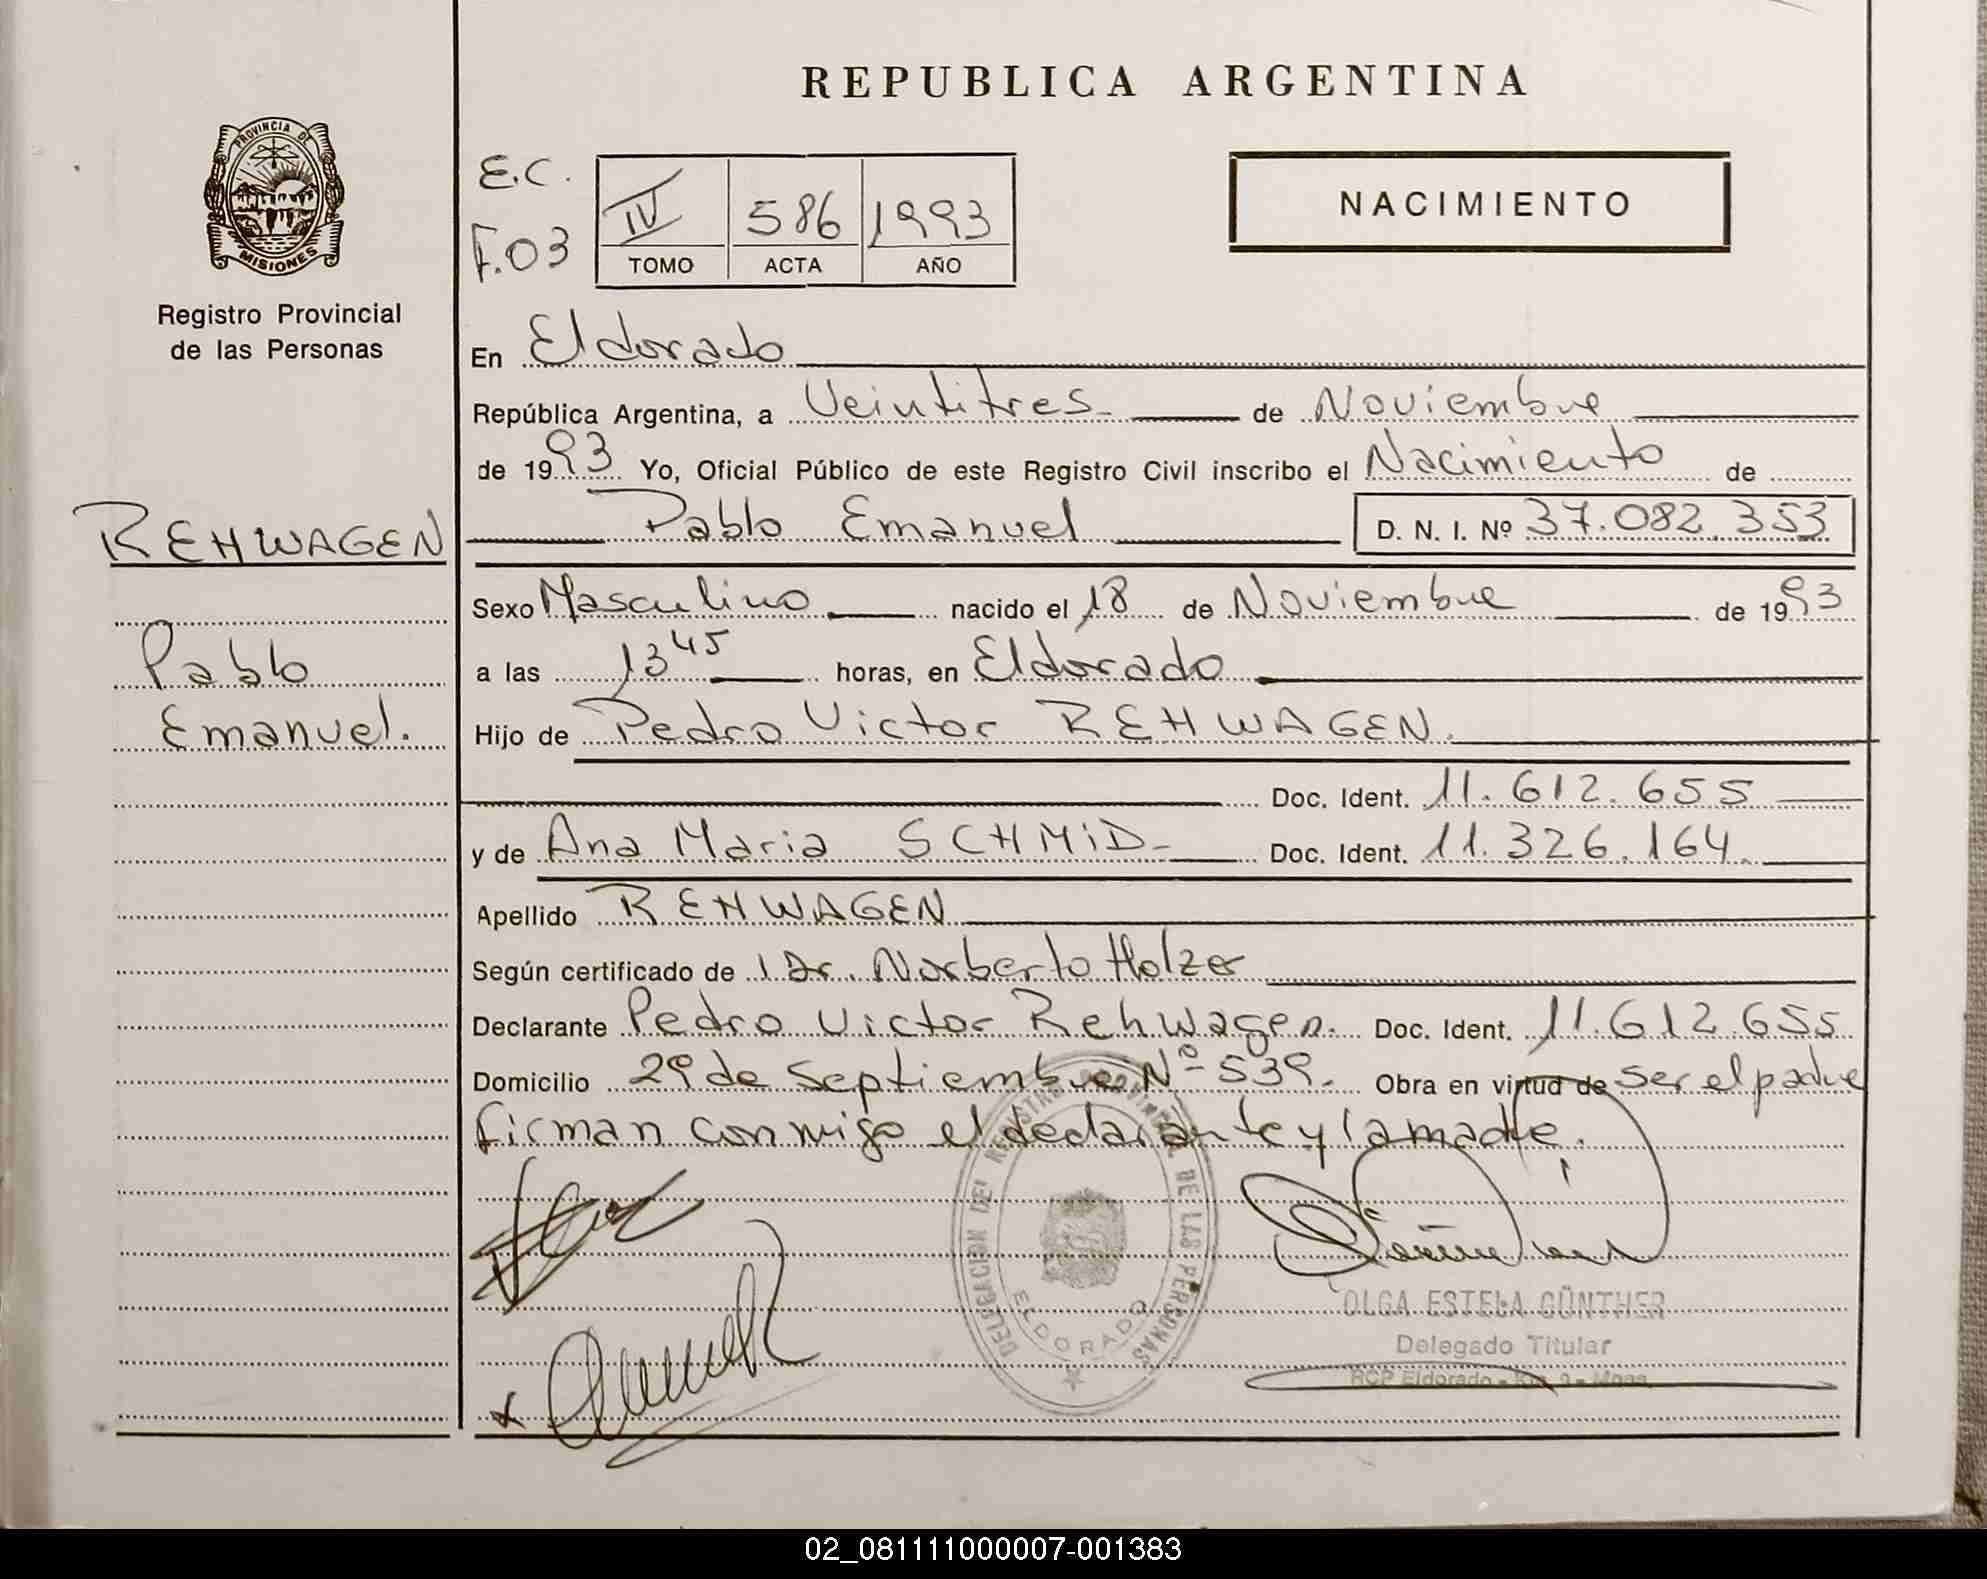 REPUBLICA ARGENTINA
PROVINCIA DE
MISIONES
Registro Provincial
de las Personas
E.C.
F.03
IV 586 1993
TOMO ACTA AÑO
NACIMIENTO
En Eldorado
República Argentina, a Veintitres de Noviembre
de 1993 Yo, Oficial Público de este Registro Civil inscribo el Nacimiento de
REHWAGEN
Pablo Emanuel D. N. I. Nº 37.082.353
Sexo Masculino nacido el 18 de Noviembre de 1993
Pablo
a las 13 45 horas, en Eldorado
Emanuel.
Hijo de Pedro Victor REHWAGEN.
Doc. Ident. 11.612.655
y de Ana Maria SCHMID- Doc. Ident. 11.326.164.
Apellido REHWAGEN
Según certificado de 1 Dr. Norberto Holzer
Declarante Pedro Victor Rehwagen. Doc. Ident. 11.612.655
Domicilio 29 de Septiembre Nº 539. Obra en virtud de ser el padre
firman conmigo el declarante y la madre.
DELEGACION DEL REGISTRO PROVINCIAL DE LAS PERSONAS
ELDORADO
OLGA ESTELA GÜNTHER
Delegado Titular
RCP Eldorado - Km. 9 - Mnes.
02_081111000007-001383